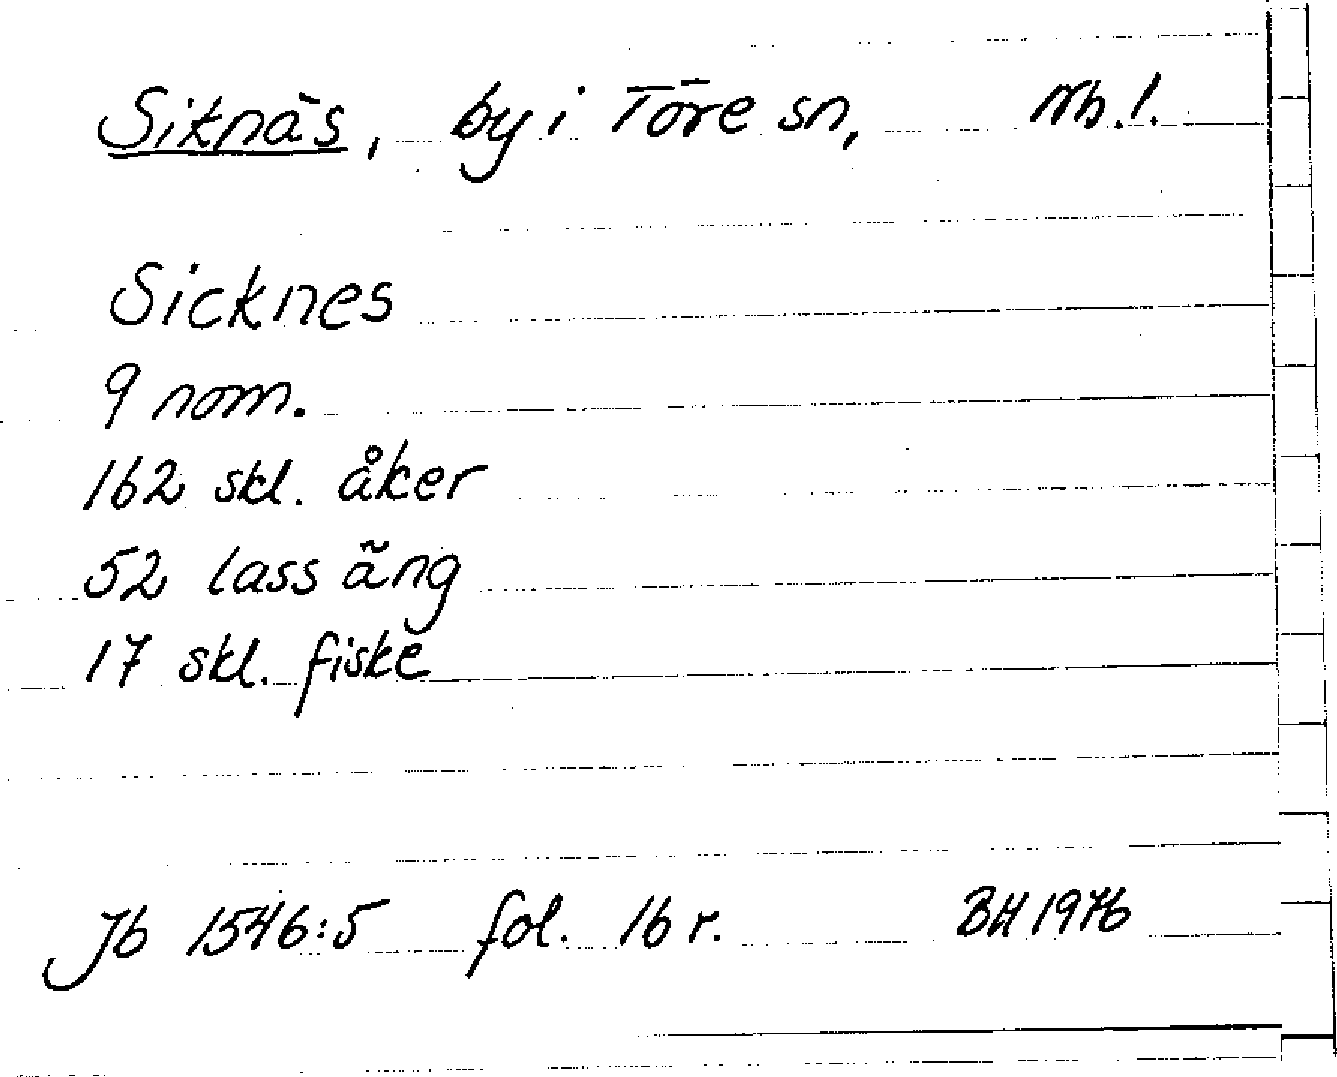 Siknäs, by i Töre sn, Nb. l.
Sicknes
9 nom.
162 skl. åker
52 lass äng
17 skl. fiske
Jb 1546:5 fol. 16 r. BH 1976